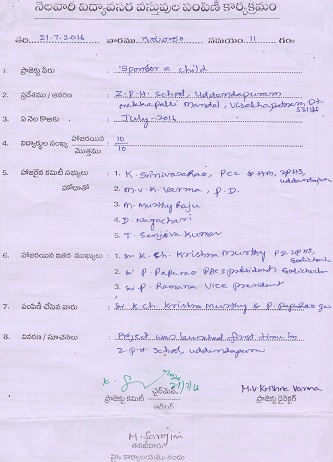 నెలవారీ విద్యావసర వస్తువుల పంపిణీ కార్యక్రమం
తేది 21.7.2016 వారము గురువారం సమయం 11 గం॥
1. ప్రాజెక్టు పేరు : Sponsor a child
2. ప్రదేశము / ఆవరణ : Z.P.H. School, Uddandapuram
Nakkapalli Mandal, Visakhapatnam Dt
531126
3. ఏ నెల కొఱకు : July-2016
4. విద్యార్థుల సంఖ్య హాజరయిన 10
మొత్తము 10
5. హాజరైన కమిటీ సభ్యులు : 1. K. Srinivasarao, PCC & HM, ZPHS,
Uddandapuram
హోదాతో 2. M.V.K. Varma, P.D.
3. M. Murthy Raju
4. D. Nagachari
5. T. Sanjeeva Kumar
6. హాజరయిన ఇతర ముఖ్యులు : 1. Sri K. Ch. Krishna Murthy
2. Sri P. Paparao PACS president
3. Sri P. Ramana Vice president
7. పంపిణీ చేసిన వారు : Sri K Ch. Krishna Murthy & P. Papa Rao
8. వివరణ / సూచనలు : Project was launched first time to
Z.P.H. School Uddandapuram
చైర్మెన్
ప్రాజెక్టు కమిటీ
M.V. Krishna Varma
ప్రాజెక్టు డైరెక్టర్
M. Sarojini